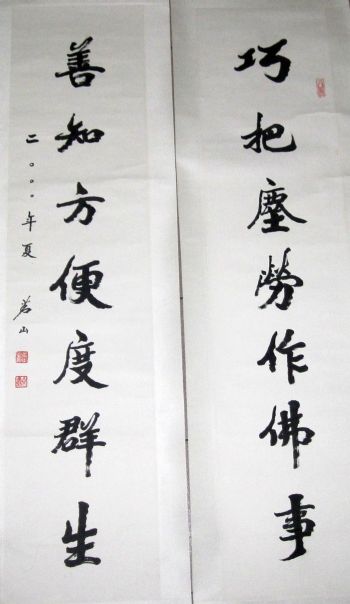 巧把塵勞作佛事
善知方便度群生
二〇〇〇年夏 若山